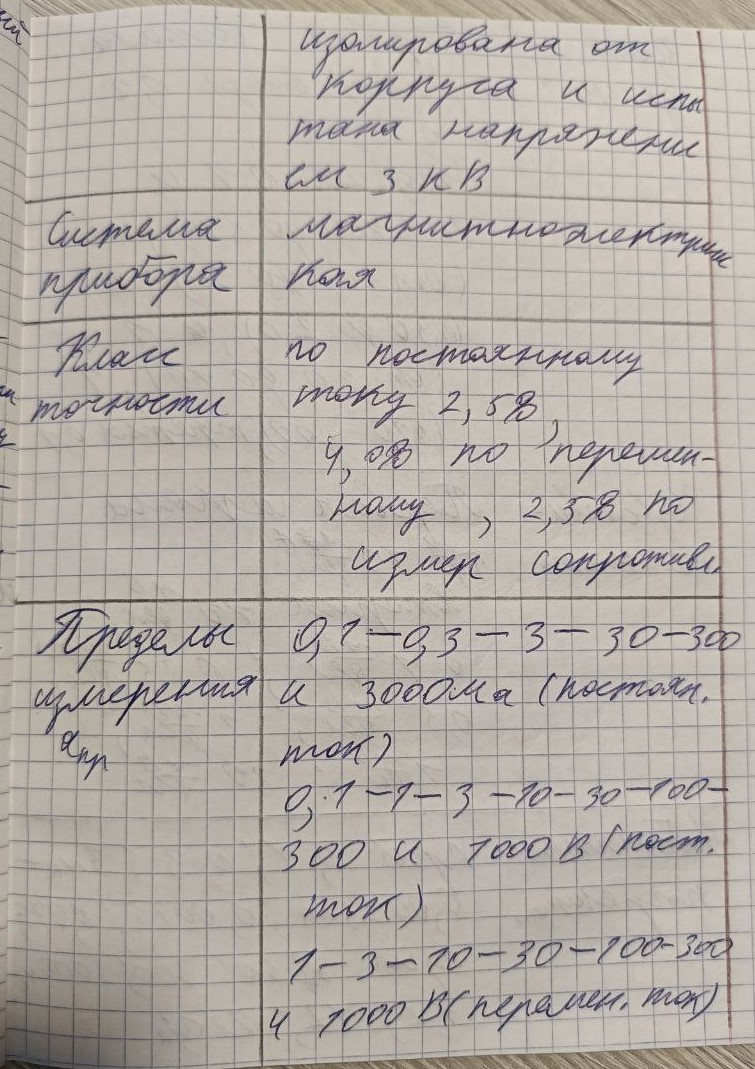 изолирована от
корпуса и испы
тана напряжени
ем 3 кВ
Система
прибора
магнитноэлектриче
кая
Класс
точности
по постоянному
току 2,5%,
4,0% по перемен-
ному, 2,5% по
измер сопротивл.
Пределы
измерения
αпр
0,1 – 0,3 – 3 – 30 – 300
и 3000 Ма (постоян.
ток)
0,1 – 1 – 3 – 10 – 30 – 100 –
300 и 1000 В (пост.
ток)
1 – 3 – 10 – 30 – 100 – 300
и 1000 В (перемен. ток)